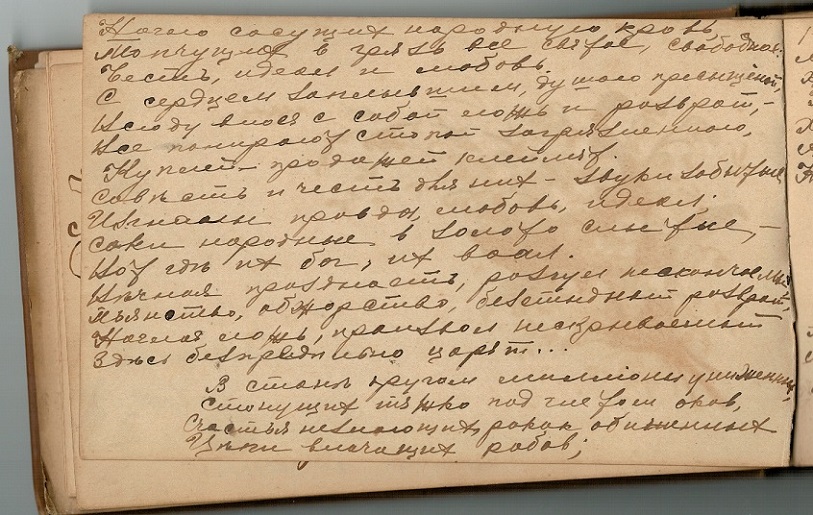 Нагло сосущих народную кровь
Топчущих в грязь все святое, свободное
Честь, идеал и любовь.
С сердцем заплывшим, душою пресыщеной,
Всюду внося с собой ложь и розврат,-
Все попирают стопой загрязненною,
Куплей-продажей клеймят.
Совѣсть и честь для них - звуки забытые
Изгнаны правда, любовь, идеал,
Соки народные в золото слитые,-
Вот гдѣ их бог, их ваал.
Вѣчная праздность, розгул нескончаемый
Пьянство, обжорство, безстыдный розврат,
Наглая ложь, произвол нескрываемый
Здѣсь безпредѣльно царят...
В станѣ другом миллионы униженных,
Стонущих тяжко под гнетом оков,
Счастья незнающих, роком обиженных
Цѣпи влачащих рабов;